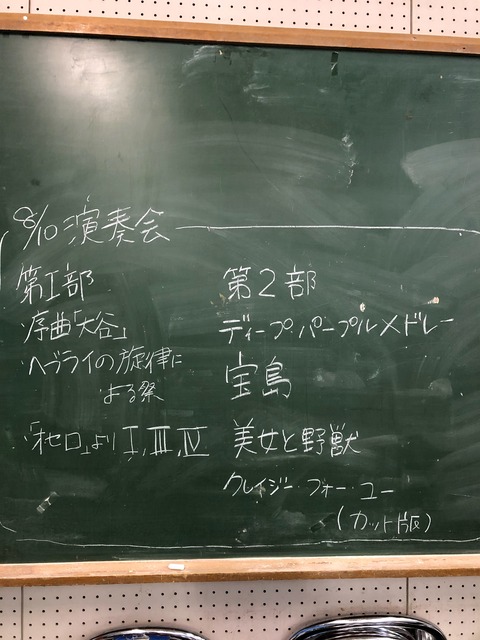 8/10 演奏会
第I部
序曲「大谷」
ヘブライの旋律に
よる祭
「オセロ」より I, III, IV
第2部
ディープ・パープルメドレー
宝島
美女と野獣
クレイジー・フォー・ユー
(カット版)